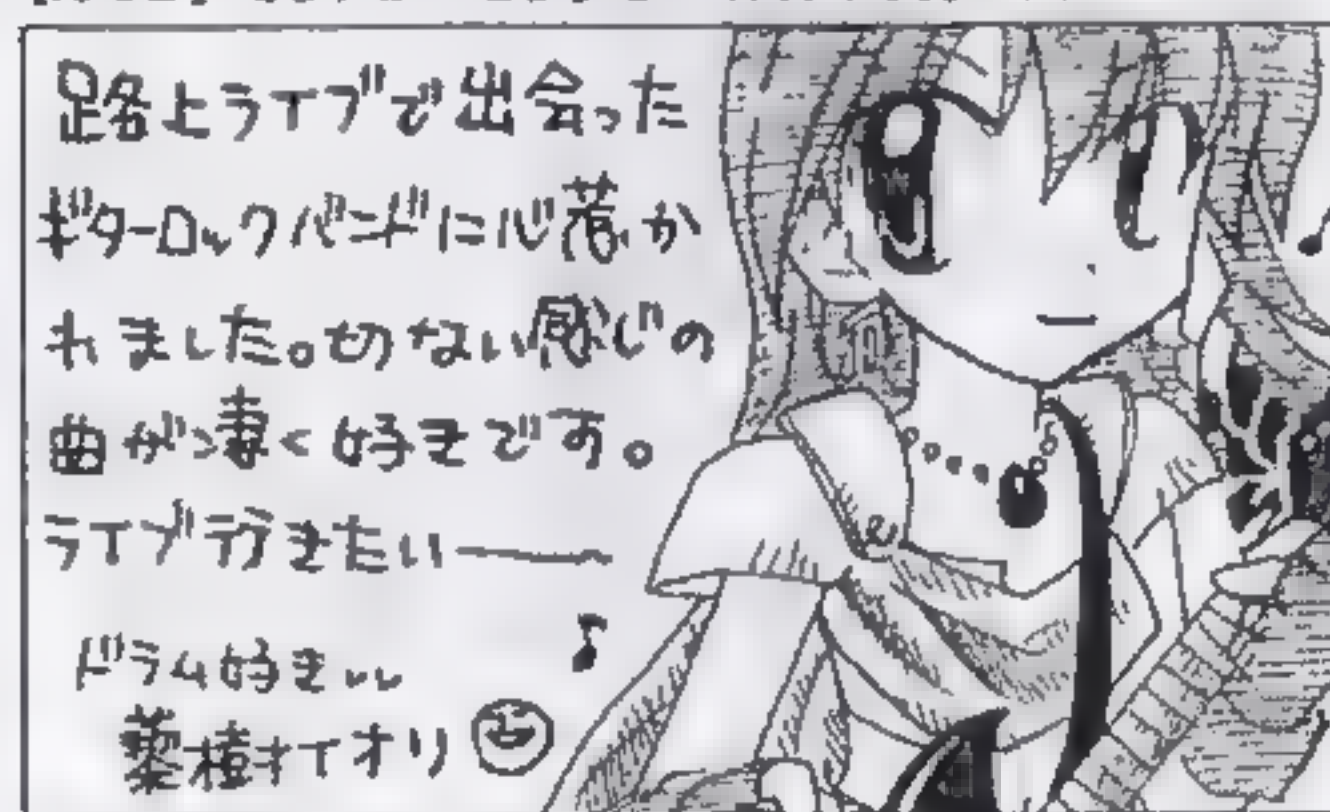 路上ライブで出会った
ギターロックバンドに心惹か
れました。切ない感じの
曲が凄く好きです。
ライブ行きたい――
ドラム好きぃぃ
樹オイオリ